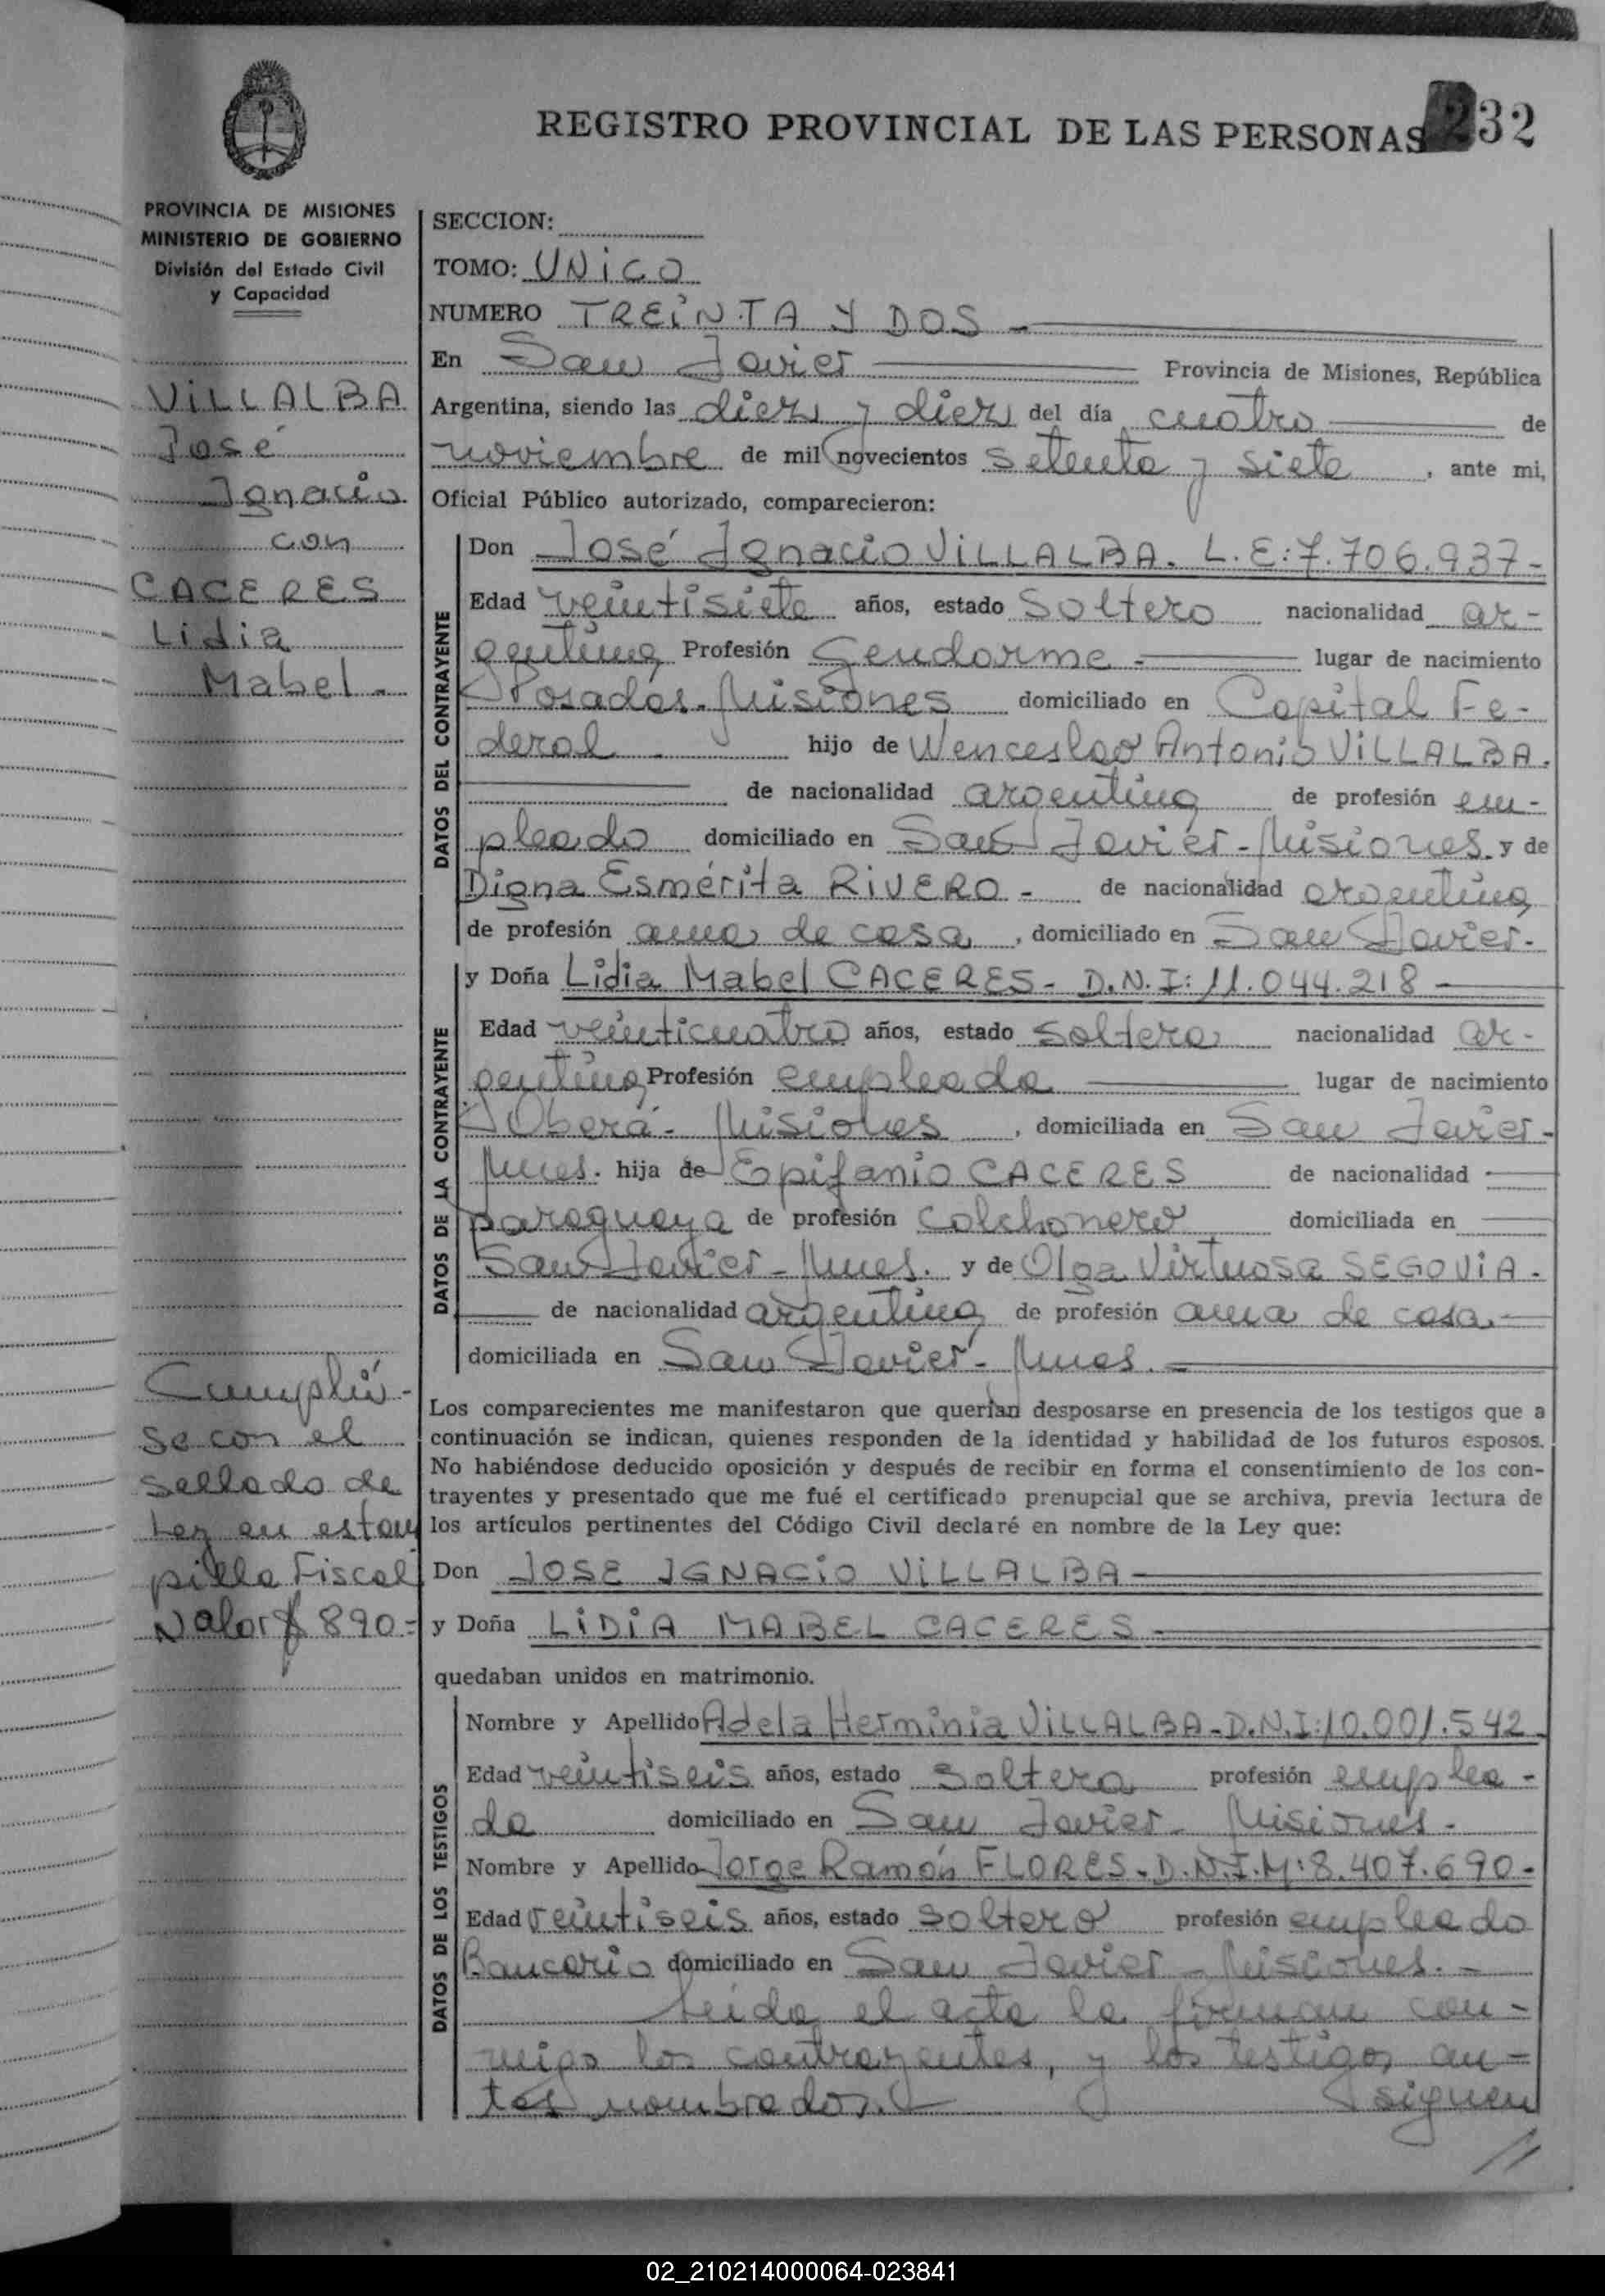 REGISTRO PROVINCIAL DE LAS PERSONAS 232
PROVINCIA DE MISIONES
MINISTERIO DE GOBIERNO
División del Estado Civil
y Capacidad
VILLALBA
José
Ignacio
con
CACERES
Lidia
Mabel.-
Cumplió-
se con el
sellado de
Ley en estam
pilla Fiscal
Valor $ 890.-
SECCION:
TOMO: UNICO
NUMERO TREINTA Y DOS -
En San Javier Provincia de Misiones, República
Argentina, siendo las diez y diez del día cuatro de
noviembre de mil novecientos setenta y siete, ante mi,
Oficial Público autorizado, comparecieron:
DATOS DEL CONTRAYENTE
Don José Ignacio VILLALBA. L.E: 7.706.937-
Edad veintisiete años, estado soltero nacionalidad ar-
gentina Profesión Gendarme.- lugar de nacimiento
Posadas. Misiones domiciliado en Capital Fe-
deral - hijo de Wenceslao Antonio VILLALBA.
de nacionalidad argentina de profesión em-
pleado domiciliado en San Javier-Misiones. y de
Digna Esmérita RIVERO - de nacionalidad argentina
de profesión ama de casa, domiciliado en San Javier.-
DATOS DE LA CONTRAYENTE
y Doña Lidia Mabel CACERES- D.N.I: 11.044.218 -
Edad veinticuatro años, estado soltera nacionalidad ar-
gentina Profesión empleada lugar de nacimiento
Oberá- Misiones, domiciliada en San Javier-
Mnes. hija de Epifanio CACERES de nacionalidad
paraguaya de profesión colchonero domiciliada en
San Javier- Mnes. y de Olga Virtuosa SEGOVIA.
de nacionalidad argentina de profesión ama de casa.-
domiciliada en San Javier- Mnes. -
Los comparecientes me manifestaron que querían desposarse en presencia de los testigos que a
continuación se indican, quienes responden de la identidad y habilidad de los futuros esposos.
No habiéndose deducido oposición y después de recibir en forma el consentimiento de los con-
trayentes y presentado que me fué el certificado prenupcial que se archiva, previa lectura de
los artículos pertinentes del Código Civil declaré en nombre de la Ley que:
Don JOSE IGNACIO VILLALBA
y Doña LIDIA MABEL CACERES -
quedaban unidos en matrimonio.
DATOS DE LOS TESTIGOS
Nombre y Apellido Adela Herminia VILLALBA-D.N.I:10.001.542
Edad veintiseis años, estado soltera profesión emplea-
da domiciliado en San Javier- Misiones.-
Nombre y Apellido Jorge Ramón FLORES-D.N.I.M:8.407.690-
Edad veintiseis años, estado soltero profesión empleado
Bancario domiciliado en San Javier - Misiones. -
Leida el acta la firman con-
migo los contrayentes, y los testigos an-
tes nombrados. siguen
//
02_210214000064-023841